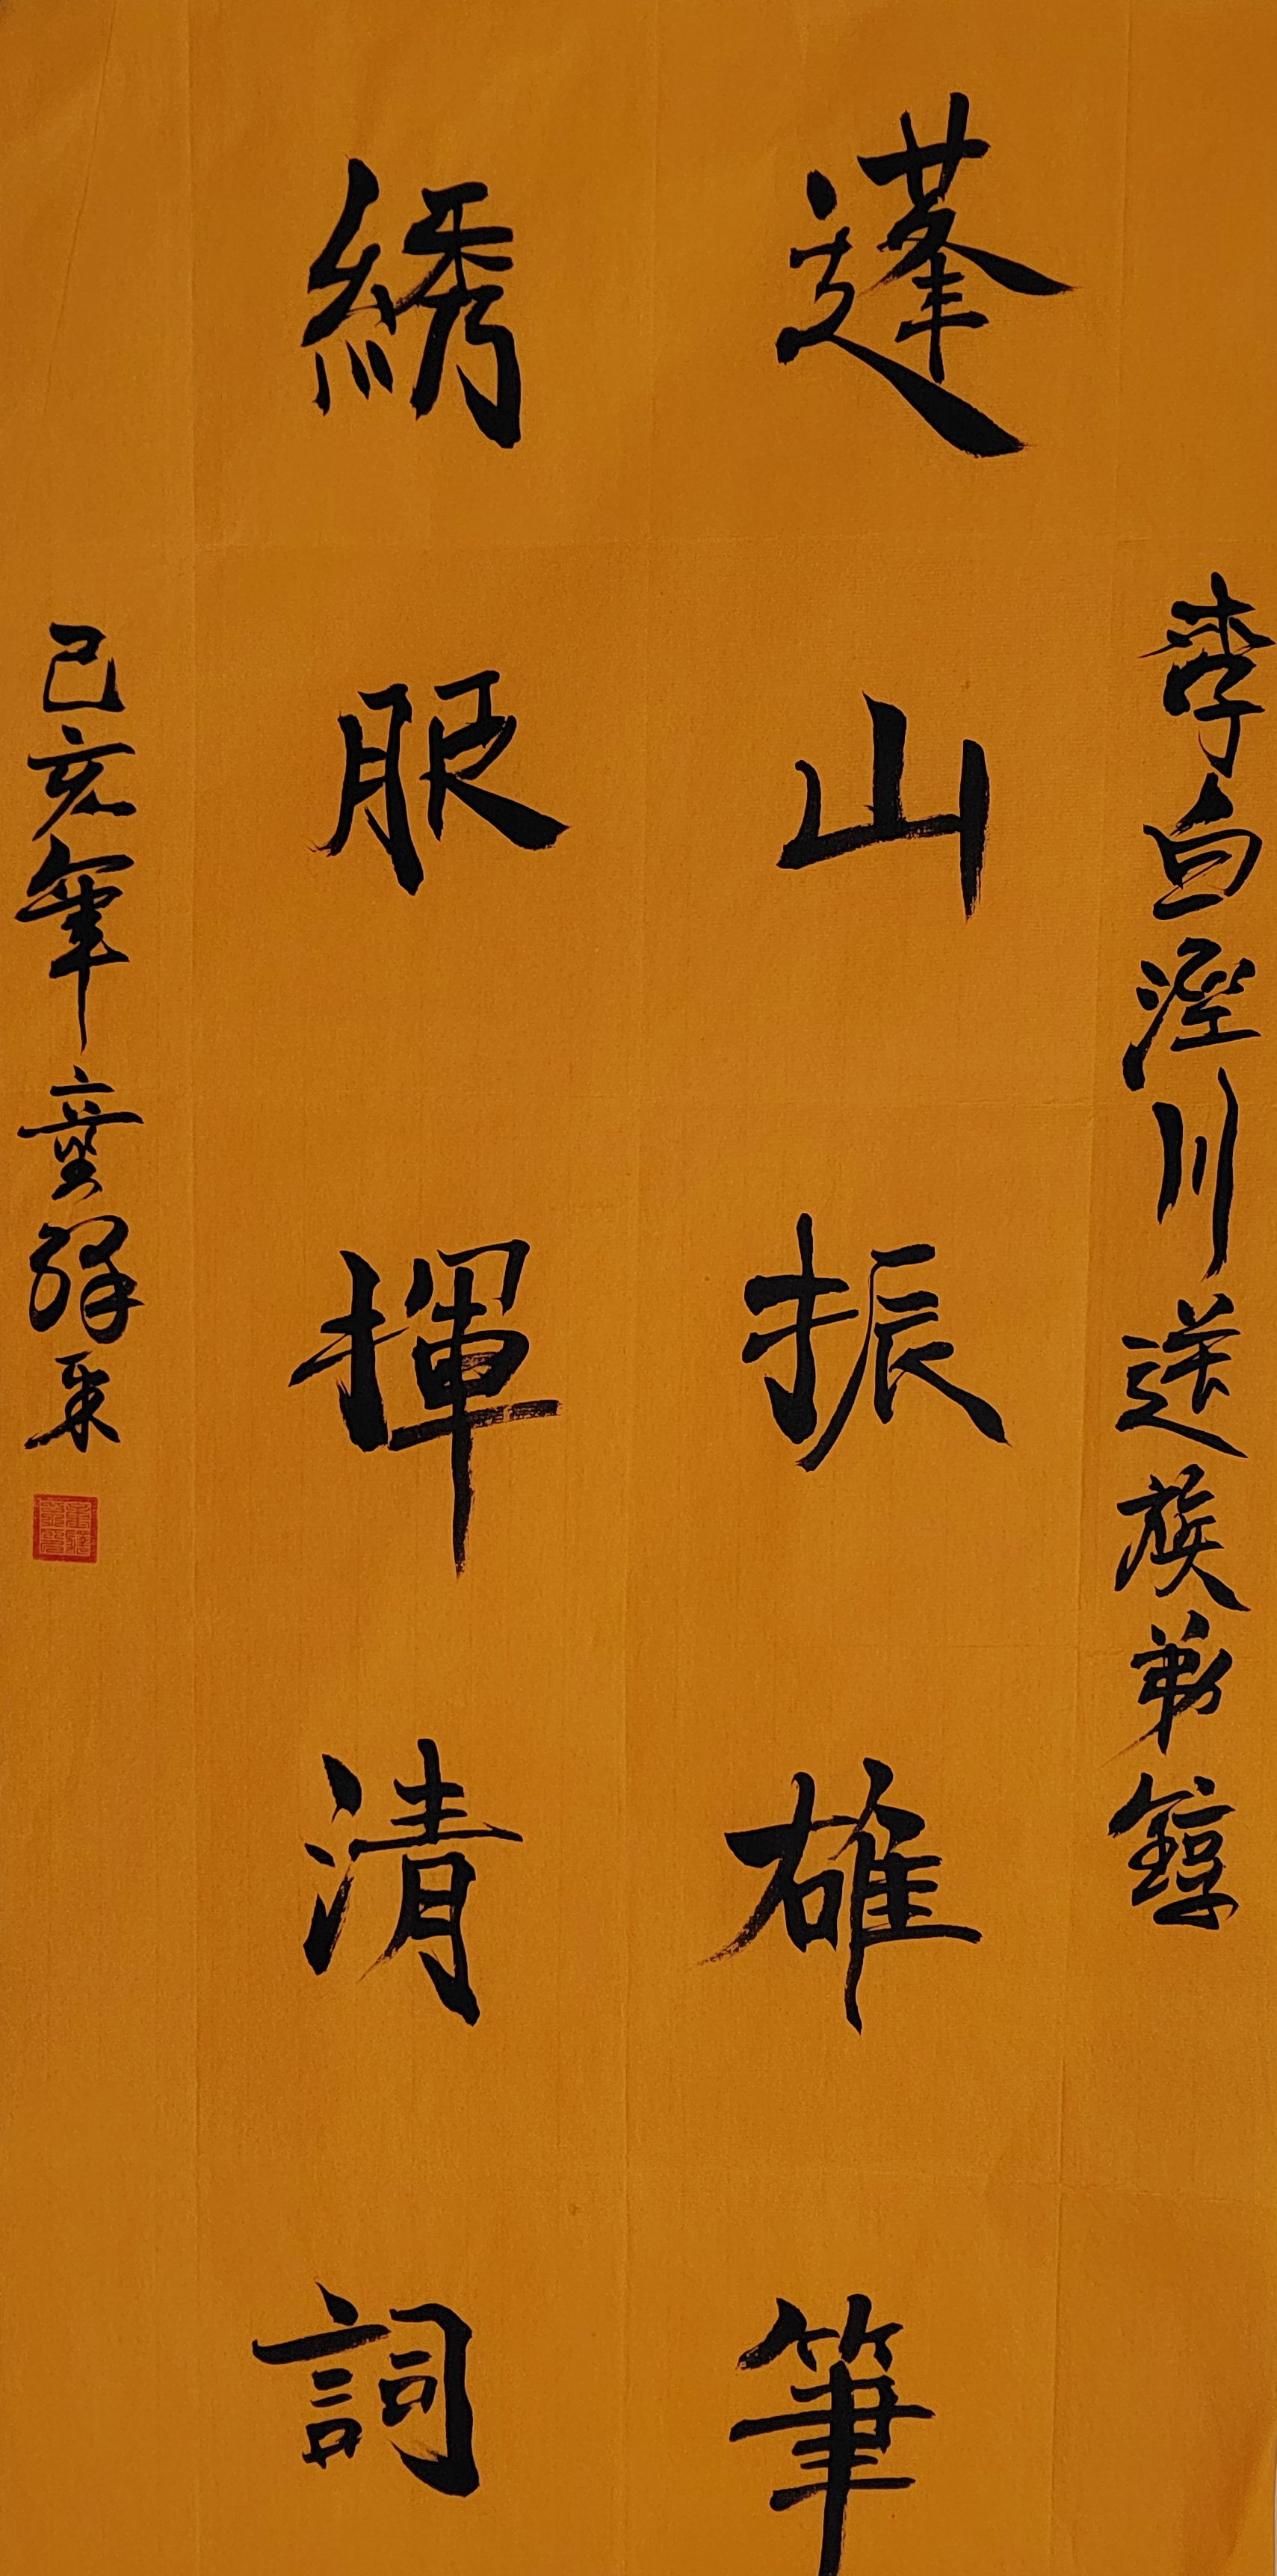 李白涇川送族弟錞
蓬山振雄筆
綉服揮清詞
己亥年童驛采